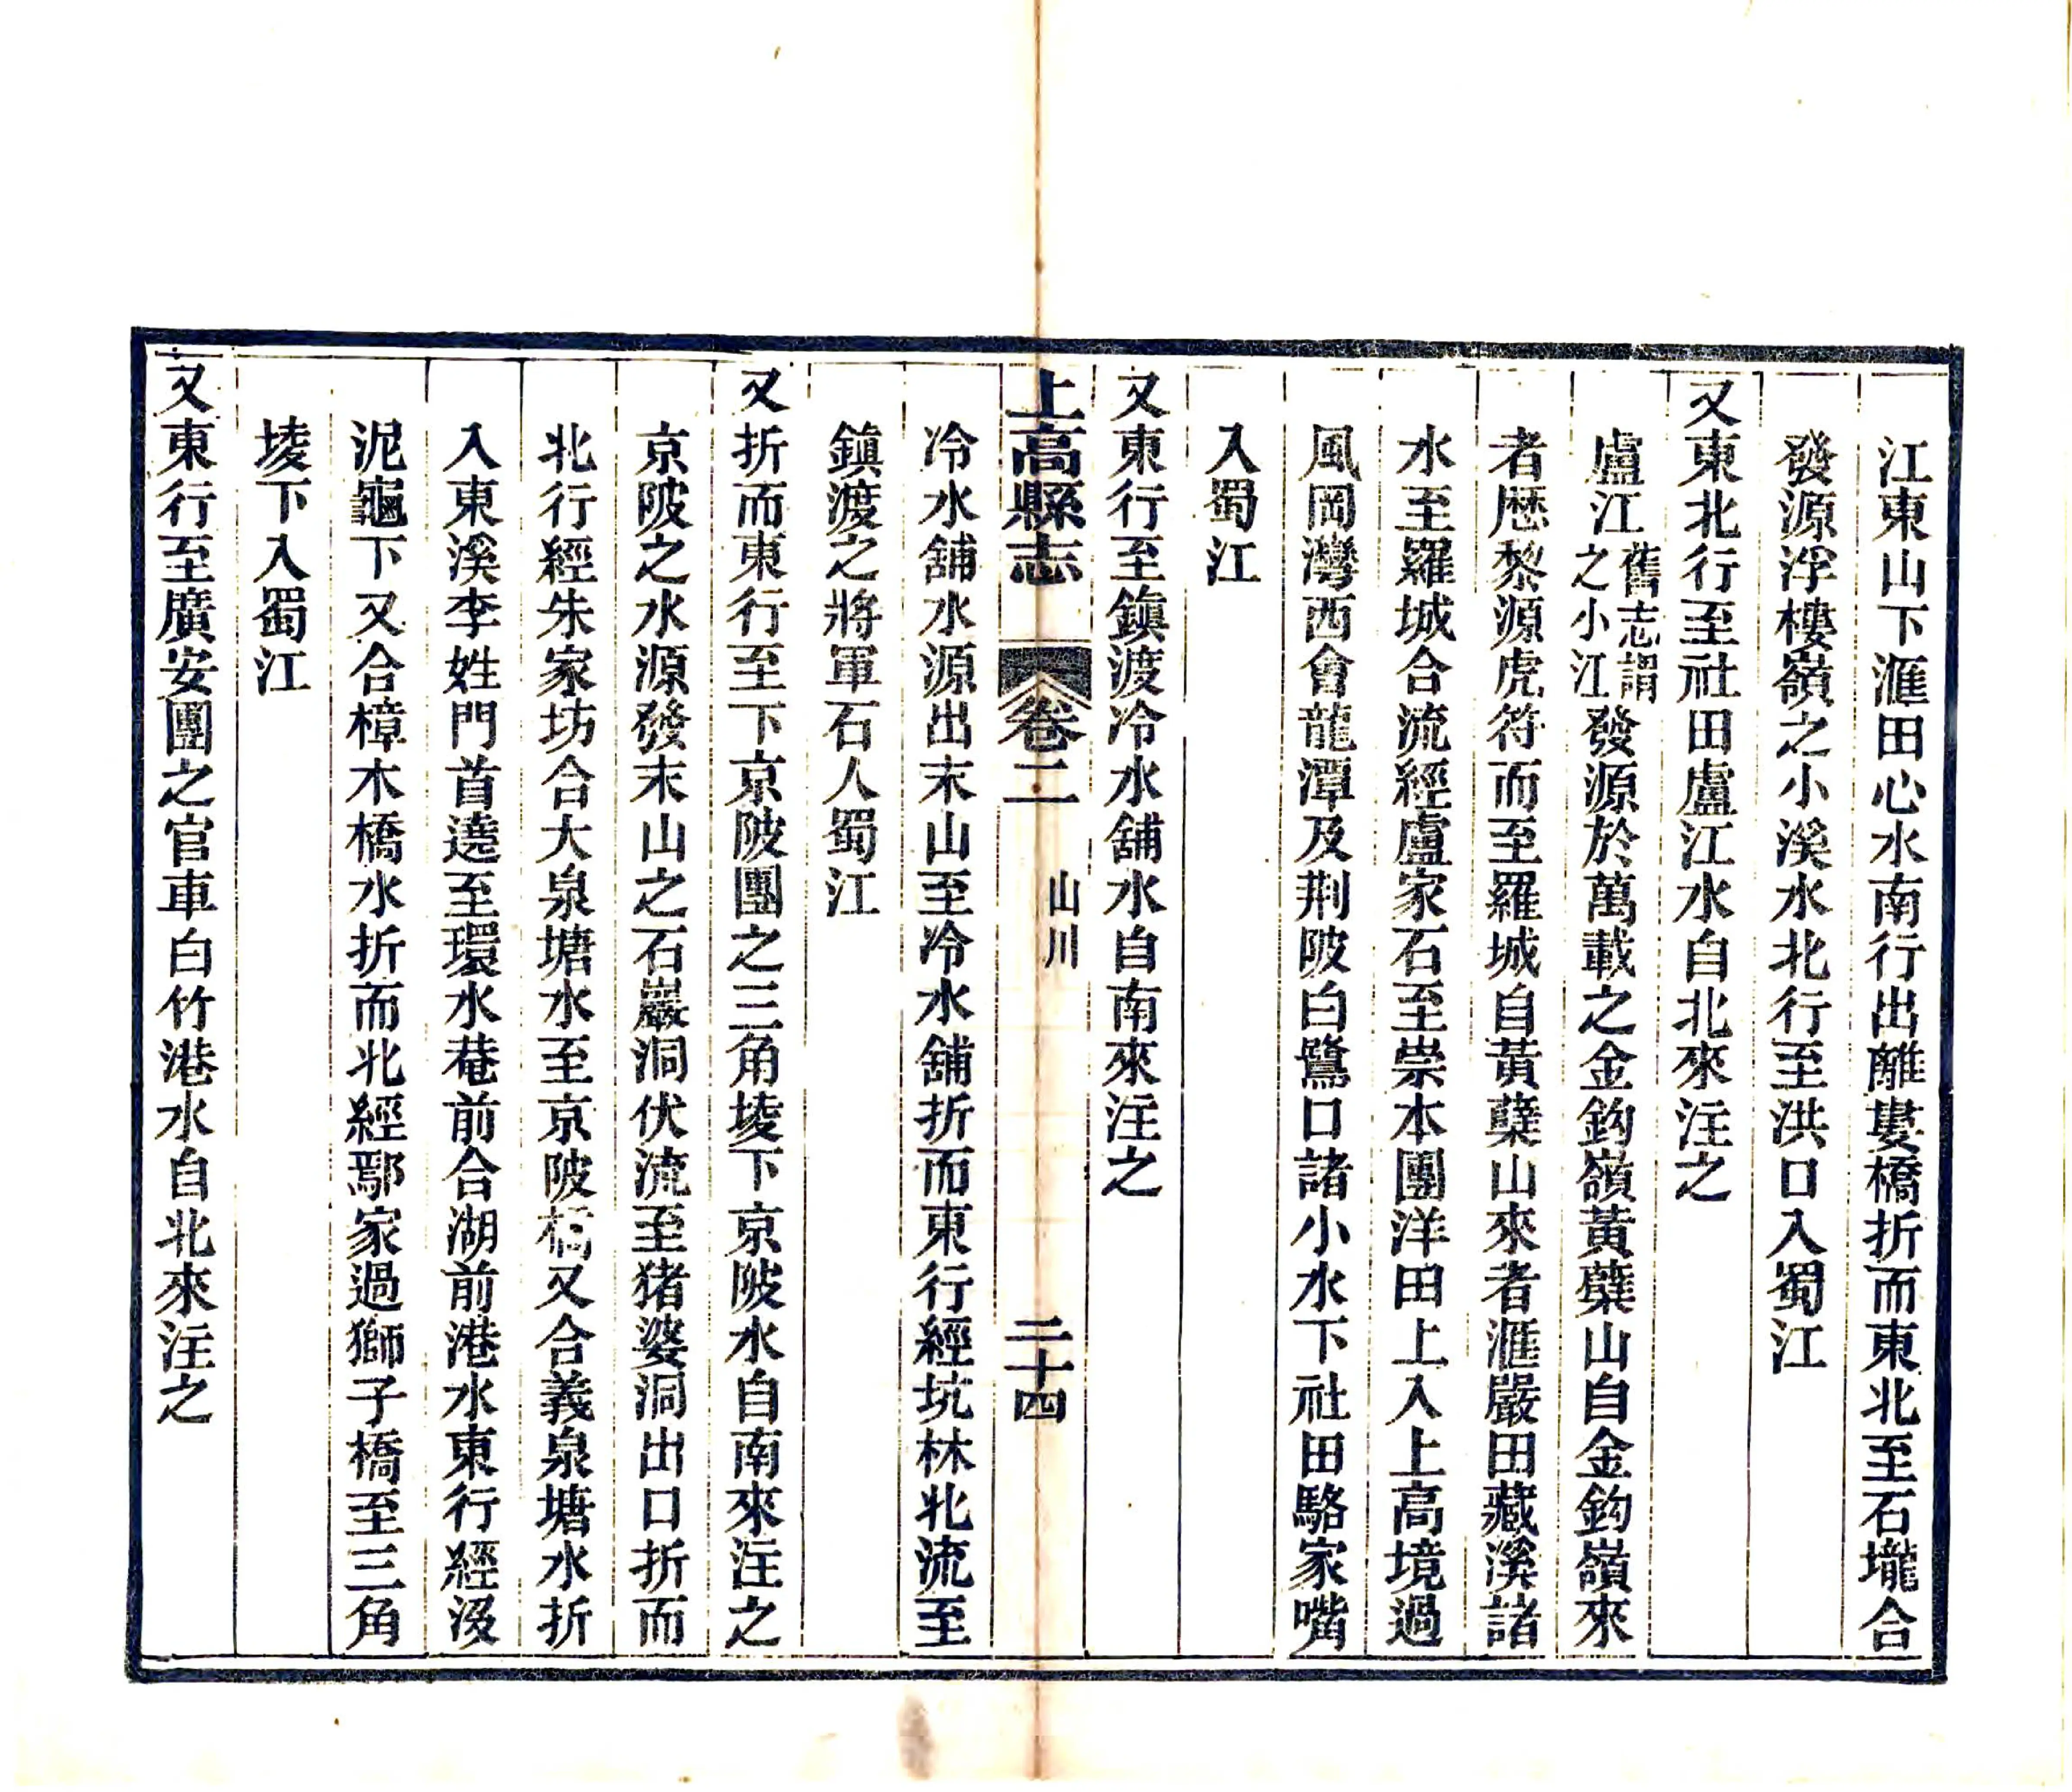 江東山下滙田心水南行出離婁橋折而東北至石壠合
發源浮樓嶺之小溪水北行至洪口入蜀江
又東北行至社田盧江水自北來注之
盧江舊志謂之小江發源於萬載之金鈎嶺黃蘗山自金鈎嶺來
者歴黎源虎符而至羅城自黃蘗山來者滙嚴田藏溪諸
水至羅城合流經盧家石至崇本團洋田上入上高境過
風岡灣西會龍潭及荆陂白鷺口諸小水下社田駱家嘴
入蜀江
又東行至鎮渡冷水舖水自南來注之
上高縣志 卷二 山川 二十四
冷水舖水源出末山至冷水舖折而東行經坑林北流至
鎮渡之將軍石人蜀江
又折而東行至下京陂團之三角堎下京陂水自南來注之
京陂之水源發末山之石巖洞伏流至猪婆洞出口折而
北行經朱家坊合大泉塘水至京陂橋又合義泉塘水折
入東溪李姓門首遶至環水菴前合湖前港水東行經沒
泥龜下又合樟木橋水折而北經鄢家過獅子橋至三角
堎下入蜀江
又東行至廣安團之官車白竹港水自北來注之